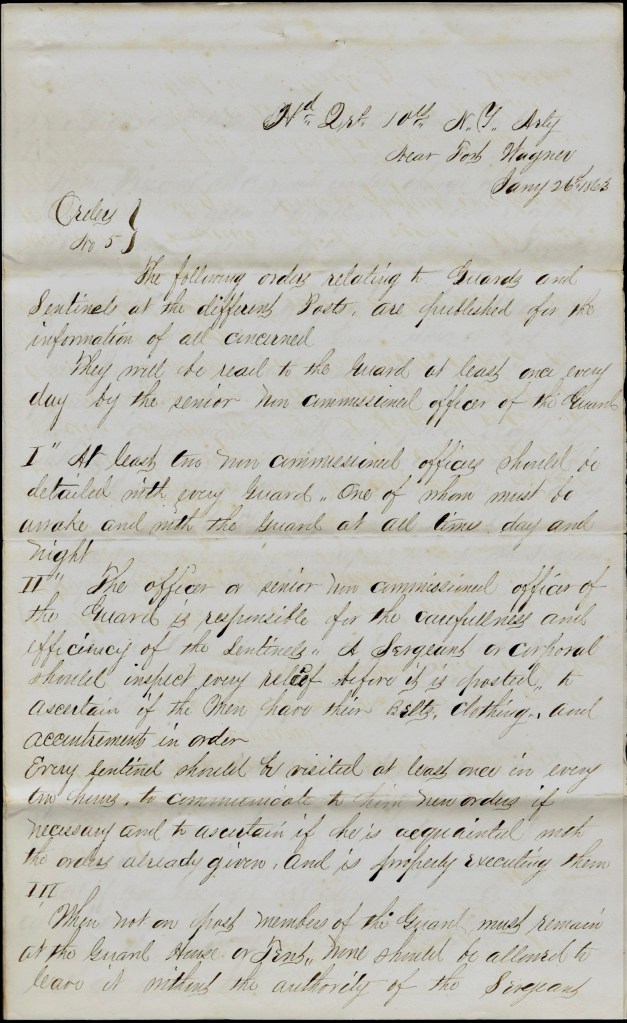 Hd Qrs 10th N.Y. Arty
Near Fort Wagner
Jany 26th 1863
Orders }
No 5 }
The following orders relating to Guards and
Sentinels at the different Posts, are published for the
information of all concerned
They will be read to the Guard at least once every
day by the senior non commissioned officer of the Guard
I" At least two non commissioned officers should be
detailed with every Guard, One of whom must be
awake and with the Guard at all times day and
night
II" The officer or senior non commissioned officer of
the Guard is responsible for the carefullness and
efficiency of the Sentinels,. A Sergeant or corporal
should inspect every relief before it is posted,, to
ascertain if the Men have their Belts, Clothing., and
accoutrements in order
Every sentinel should be visited at least once in every
two hours, to communicate to him new orders if
necessary and to ascertain if he is acquainted with
the orders already given, and is properly executing them
III
When not on post members of the Guard must remain
at the Guard House or Tent,, None should be allowed to
leave it without the authority of the Sergeant